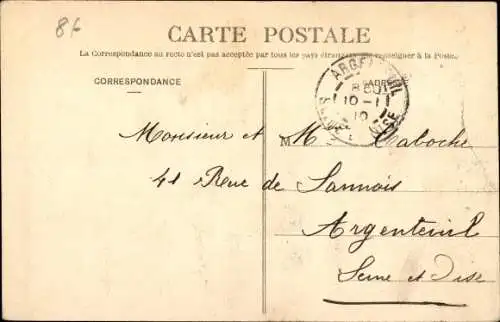 86
CARTE POSTALE
La Correspondance au recto n'est pas acceptée par tous les pays étrangers. renseigner à la Poste.
CORRESPONDANCE
ARGENTEUIL
8
10-1
10
Monsieur et Mme Caboche
41 Rue de Sannois
Argenteuil
Seine et Oise